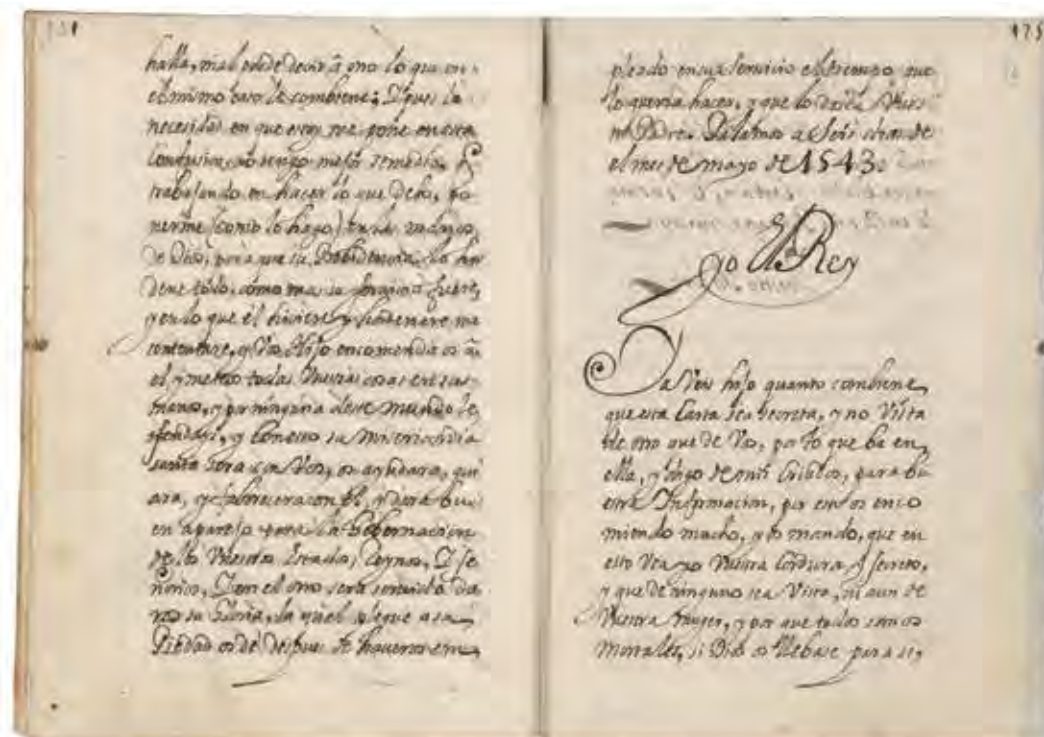 halla, mal puede decir a otro lo que en
el mismo caso le combiene; Y pues la
necesidad en que estoy me pone en esta
no tengo mejor remedio, q
trabajando en hacer lo que debo, po
nerme (como lo hago) en las manos
de Dios, para que su Probidencia lo hor
dene todo, como mas su fuere,
y en lo que él hiciere y hordenare me
contentare, y Vos Hijo encomendaos a
el y meted todas Vuestras cosas en sus
manos, y por ninguna de este mundo le
ofendais, y con esto su Misericordia
santa sera con Vos, os ayudara, gui
ara, y faborecera con El, y dara bu
en aparejo para la Gobernacion
de los Vuestros Estados, Reynos, Y Se
ñorios, Y en el otro sera servido da
ros su Gloria, la qual plegue a su
Piedad os dé despues de haveros em
175
pleado en su servicio el tiempo que
lo queria hacer, y que lo desea Vues
tro Padre. Palamos a Seis dias de
el mes de mayo de 1543.
Yo El Rey
Ya Veis hijo quanto combiene
que esta Carta sea Secreta, y no Vista
de otro que de Vos, por lo que ba en
ella, y digo de mis Criados, para bu
estra Informacion, por esto os enco
miendo mucho, y os mando, que en
esto Vea yo Vuestra Cordura y Secreto,
y que de ninguno sea Vista, ni aun de
Vuestra Muger, y por que todos somos
Morrales, si Dios os llebase para si,